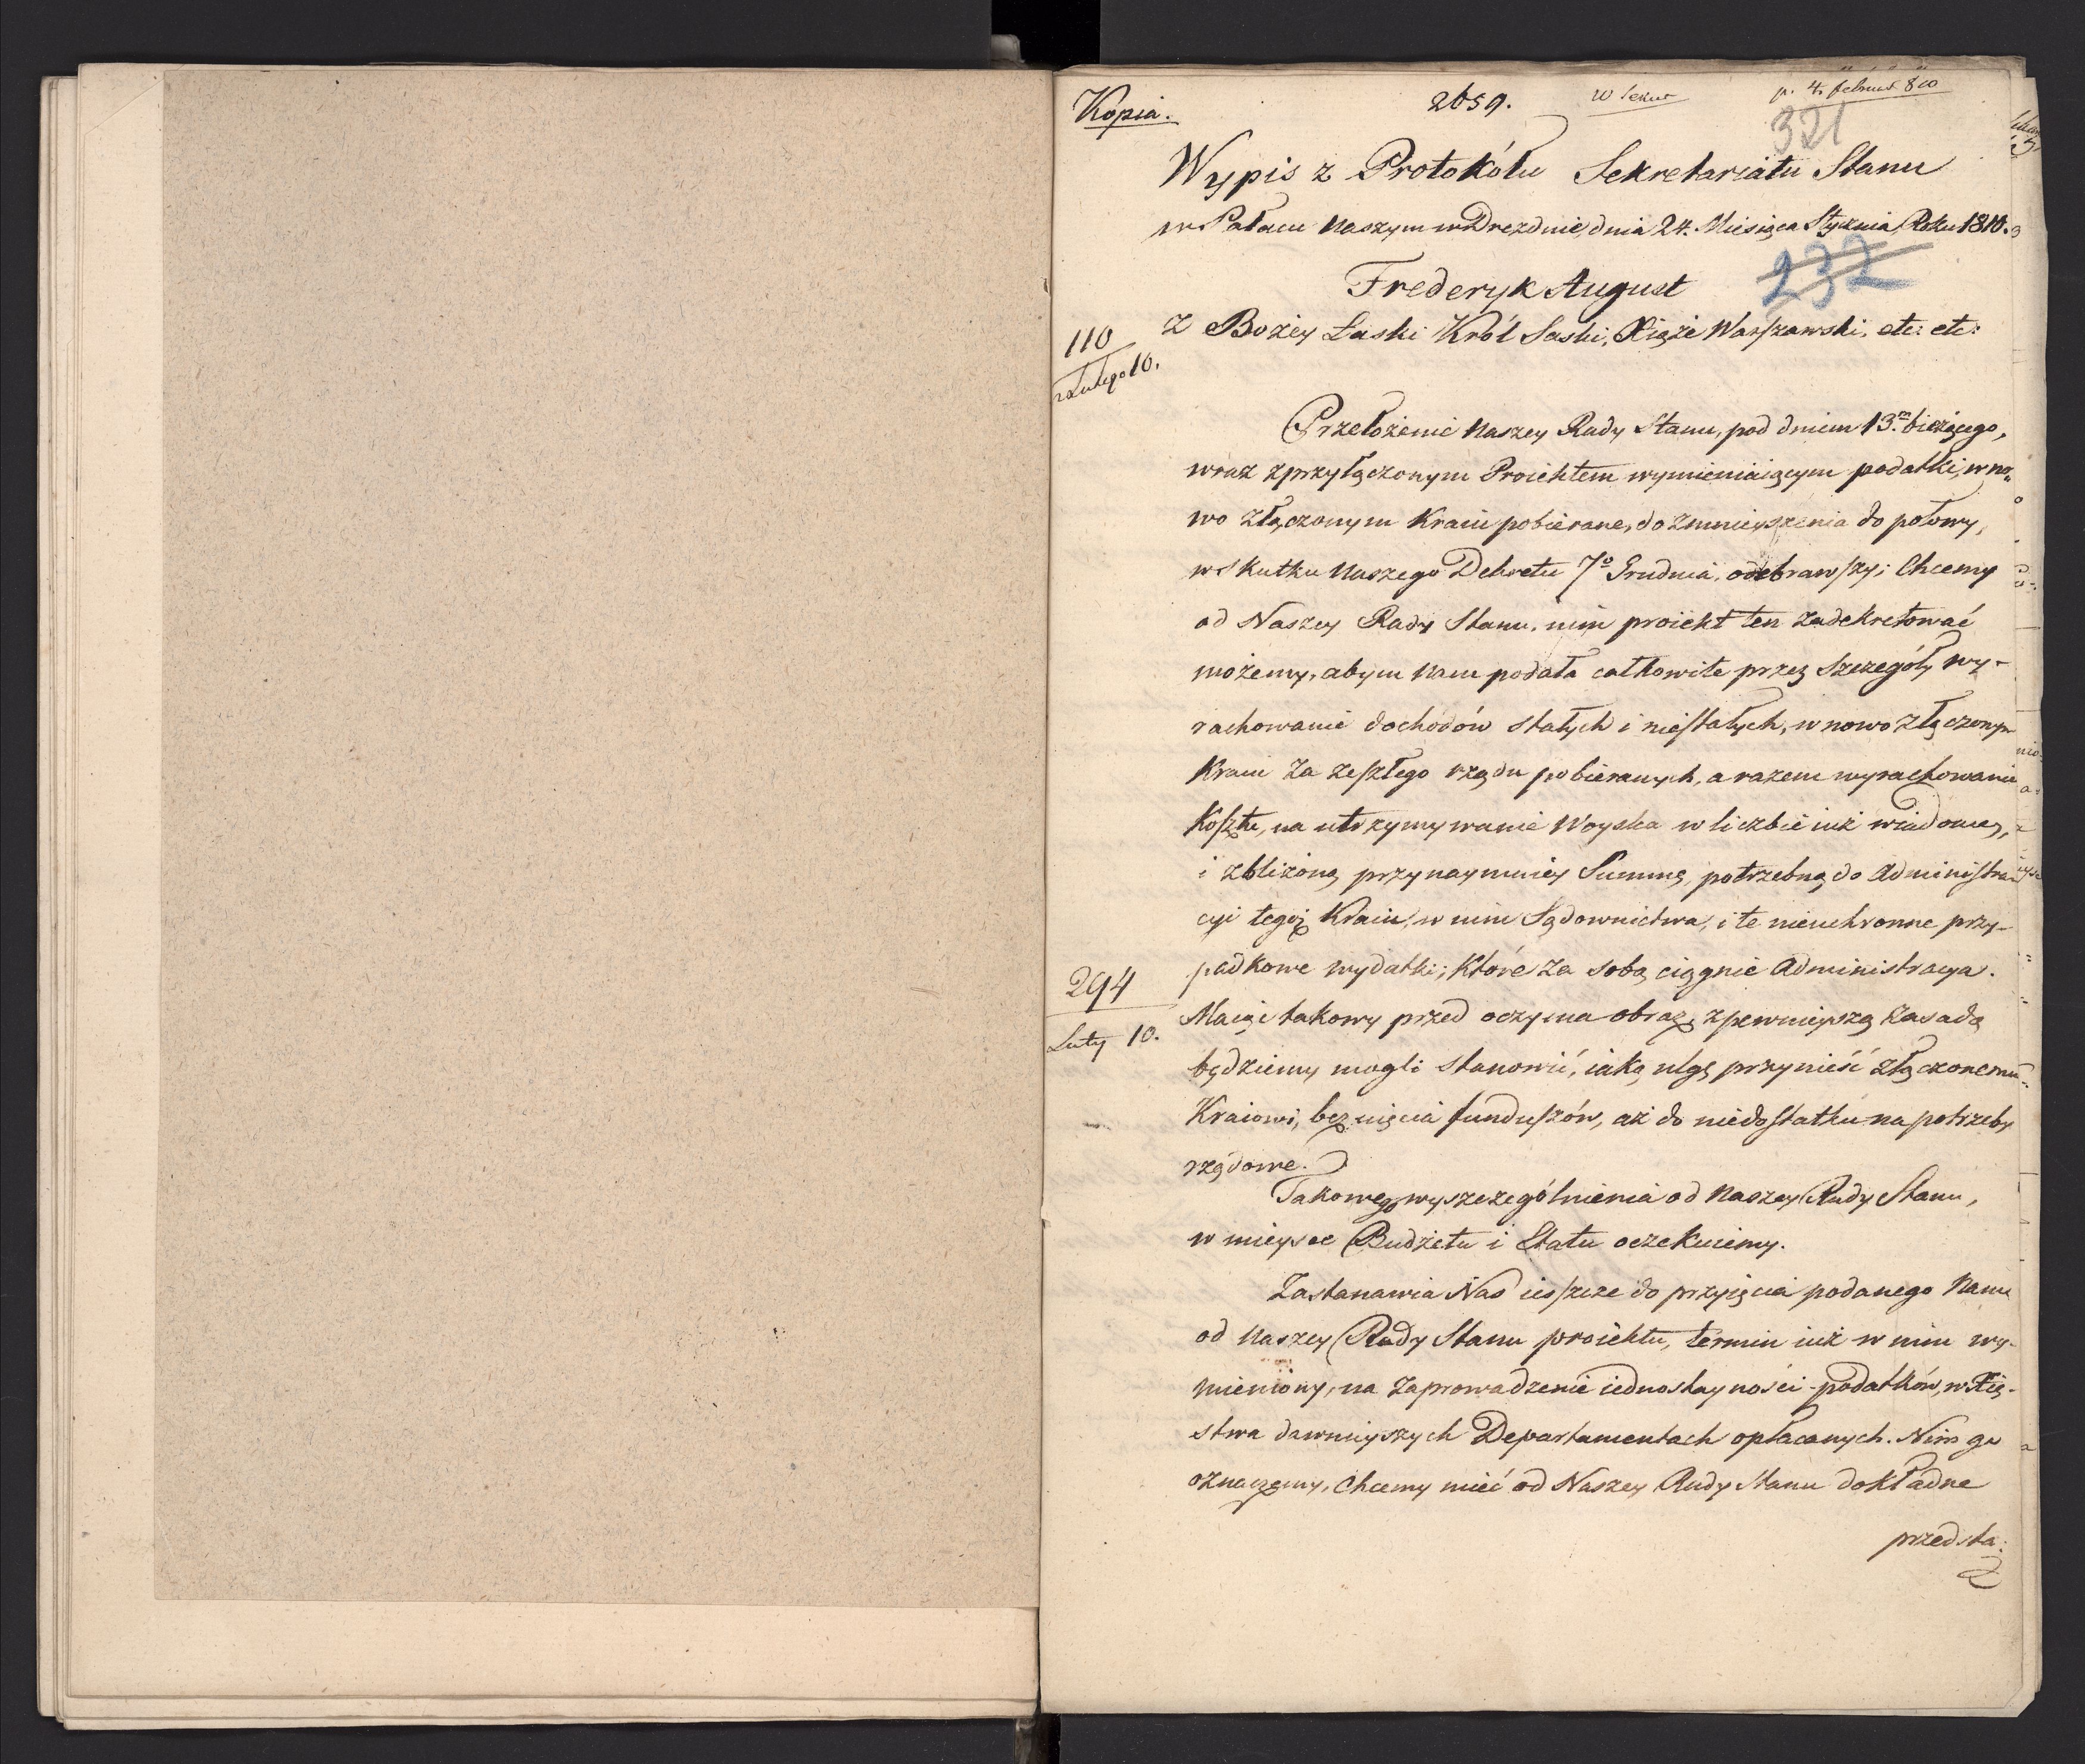 Kopia.
2659.
p. 4. februar 810
321
Wypis z Protokółu Sekretariatu Stanu
w Pałacu Naszym w Dreznie, dnia 24. Miesiąca Stycznia Roku 1810.
232
Frederyk August
Z Bożey Łaski Król Saski, Xiąże Warszawski, etc: etc:
110
Lutego 10.
Przełożenie Naszey Rady Stanu, pod dniem 13.m bieżącego,
wraz z przyłączonym Proiektem wymieniaiącym podatki, w no„
wo złączonym Kraiu pobierane, do zmnieyszenia do połowy,
w skutku Naszego Dekretu 7o Grudnia, odebrawszy; Chcemy
od Naszey Rady Stanu, nim proiekt ten zadekretować
możemy, abym Nam podała całkowite przez szczegóły wy-
rachowanie dochodów stałych i niestałych, w nowo złączonym
Kraiu za zeszłego rządu pobieranych, a razem wyrachowanie
Kosztu, na utrzymywanie Woyska w liczbie iuż wiadomey,
i zbliżoną przynaymniey Summę, potrzebną do Administra-
cyi tegoż Kraiu, w nim Sądownictwa, i te nieuchronne przy-
padkowe wydatki, które za sobą ciągnie Administracya.
294
Luty 10.
Maiąc takowy przed oczyma obraz, z pewnieyszą zasadą
będziemy mogli stanowić, iaką ulgę przynieść złączonemu
Kraiowi, bez uięcia funduszów, aż do niedostatku na potrzeby
rządowe.
Takowego wyszczególnienia od Naszey Rady Stanu,
w mieysce Budżetu i Etatu oczekuiemy.
Zastanawia Nas ieszcze do przyięcia podanego Nam
od Naszey Rady Stanu proiektu, termin iuż w nim wy-
mieniony, na zaprowadzenie iednostayności podatków, w Xię-
stwa dawnieyszych Departamentach opłacanych. Nim go
oznaczemy, Chcemy mieć od Naszey Rady Stanu dokładne
przedsta: